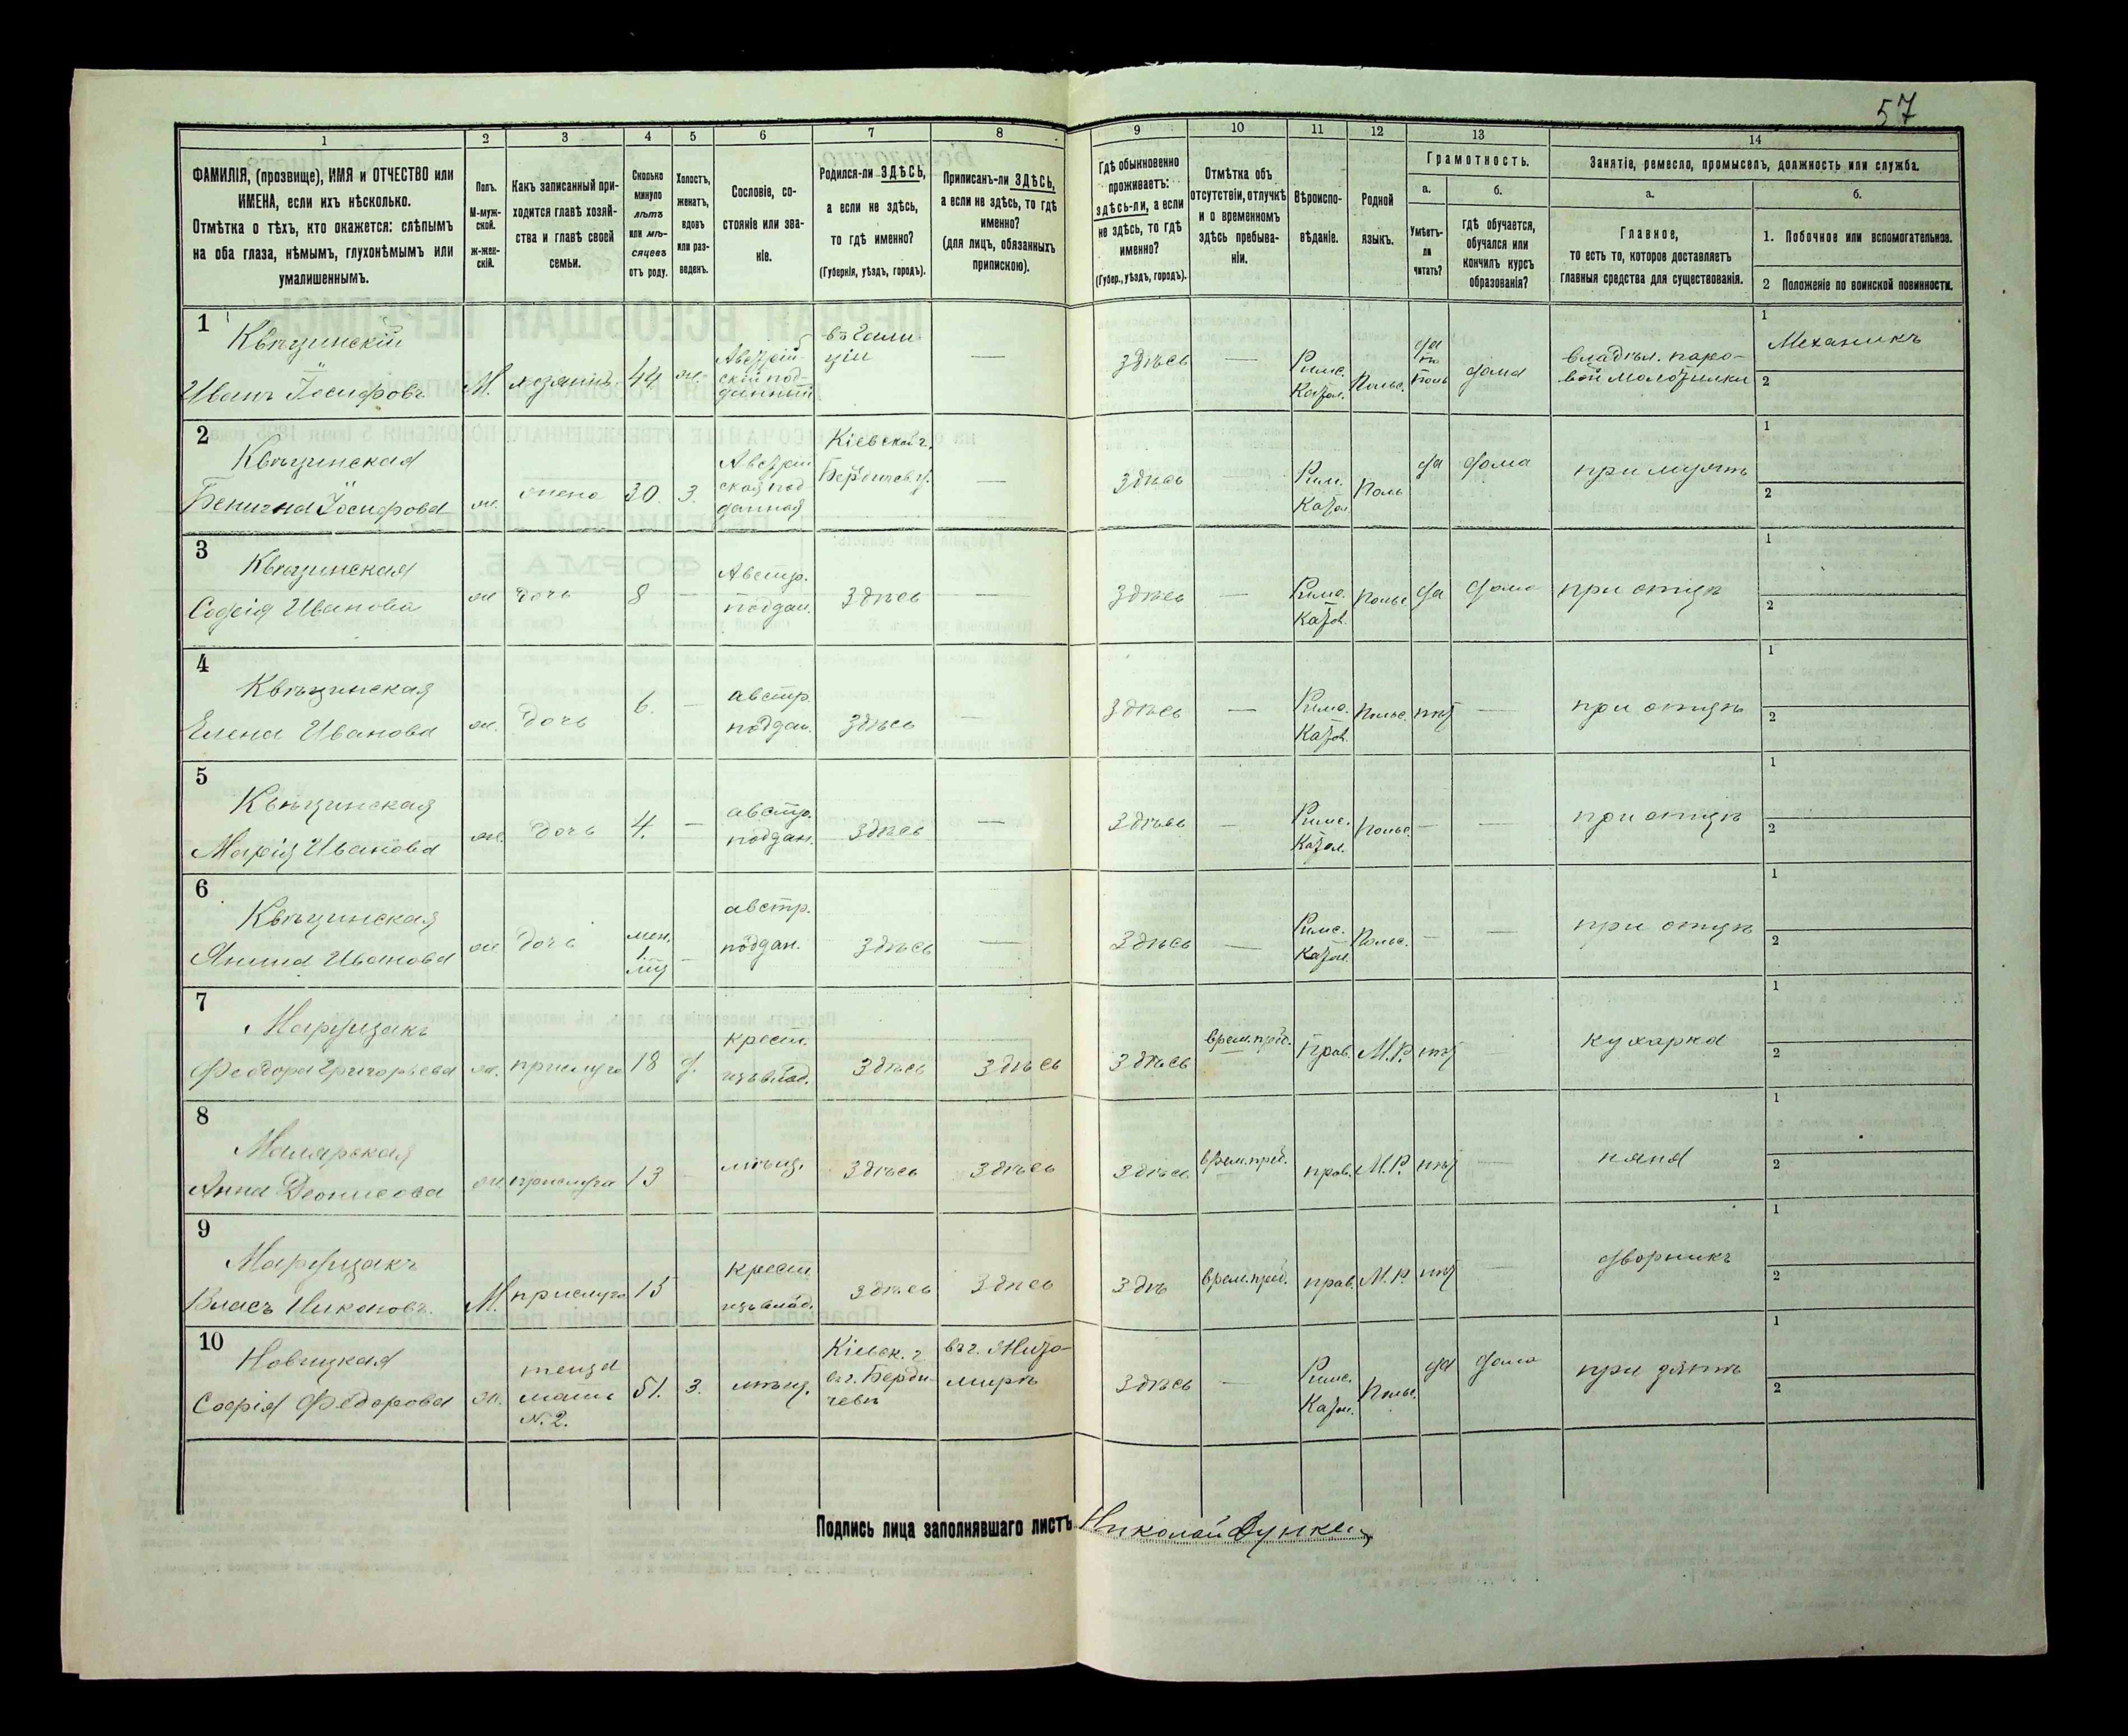 57
1 2 3 4 5 6 7 8 9 10 11 12 13 14
ФАМИЛІЯ, (прозвище), ИМЯ и ОТЧЕСТВО или
ИМЕНА, если ихъ нѣсколько.
Отмѣтка о тѣхъ, кто окажется: слѣпымъ
на оба глаза, нѣмымъ, глухонѣмымъ или
умалишеннымъ.
Полъ.
М-муж-
ской.
ж-жен-
скій.
Какъ записанный при-
ходится главѣ хозяй-
ства и главѣ своей
семьи.
Сколько
минуло
лѣтъ
или мѣ-
сяцевъ
отъ роду.
Холостъ,
женатъ,
вдовъ
или раз-
веденъ.
Сословіе, со-
стояніе или зва-
ніе.
Родился-ли ЗДѢСЬ,
а если не здѣсь,
то гдѣ именно?
(Губернія, уѣздъ, городъ).
Приписанъ-ли ЗДѢСЬ,
а если не здѣсь, то гдѣ
именно?
(для лицъ, обязанныхъ
припискою).
Гдѣ обыкновенно
проживаетъ:
здѣсь-ли, а если
не здѣсь, то гдѣ
именно?
(Губер., уѣздъ, городъ).
Отмѣтка объ
отсутствіи, отлучкѣ
и о временномъ
здѣсь пребыва-
ніи.
Вѣроиспо-
вѣданіе.
Родной
языкъ.
Грамотность.
а.
Умѣетъ-
ли
читать?
б.
гдѣ обучается,
обучался или
кончилъ курсъ
образованія?
Занятіе, ремесло, промыселъ, должность или служба.
а.
Главное,
то есть то, которое доставляетъ
главныя средства для существованія.
б.
1. Побочное или вспомогательное.
2 Положеніе по воинской повинности.
1
Квѣцинскій
Иванъ Іосифовъ
М. хозяинъ 44 ж.
Австрій-
скій под-
данный
въ Гали-
ціи
—
здѣсь
—
Римс.
Катол.
Польс.
да
по
поль
дома
владѣл. паро-
вой молотилки
1
Механикъ
2
2
Квѣцинская
Бенигна Іосифова
ж. жена 30. З.
Австрій
ская под
данная
Кіевской г.
Бердичев. у.
—
здѣсь
Рим.
Катол
Поль
да дома при мужѣ
1
2
3
Квѣцинская
Софія Иванова
ж дочь 8 —
Австр.
поддан.
здѣсь — здѣсь —
Римс.
Катол.
Польс да дома при отцѣ
1
2
4
Квѣцинская
Елена Иванова
ж. дочь 6. —
австр.
поддан.
здѣсь — здѣсь —
Римс.
Катол.
Польс. нѣт — при отцѣ
1
2
5
Квѣцинская
Марія Иванова
ж. дочь 4. —
австр.
поддан.
здѣсь — здѣсь —
Римс.
Катол.
Польс. — — при отцѣ
1
2
6
Квѣцинская
Янина Иванова
ж дочь
мен.
1
мц
—
австр.
поддан.
здѣсь — здѣсь —
Римс.
Катол.
Польс. — — при отцѣ
1
2
7
Марущакъ
Феодора Григорьева
ж. прислуга 18 д.
крест.
изъ влад.
здѣсь здѣсь здѣсь врем. преб. Прав. М.Р. нѣт — кухарка
1
2
8
Малярская
Анна Деонисова
ж. прислуга 13 — мѣщ. здѣсь здѣсь здѣсь врем. преб. прав. М.Р. нѣт няня
1
2
9
Марущакъ
Власъ Никоновъ.
М. прислуга 15
крест
изъ влад.
здѣсь здѣсь здѣ врем. преб. прав. М.Р. нѣт — дворникъ
1
2
10
Новицкая
Софія Федорова
ж.
теща
мать
N. 2.
51. З. мѣщ.
Кіевск. г
въ г. Берди-
чевѣ
въ г. Жито-
мирѣ
здѣсь —
Римс.
Катол.
Польс. да дома при зятѣ
1
2
Подпись лица заполнявшаго листъ Николай